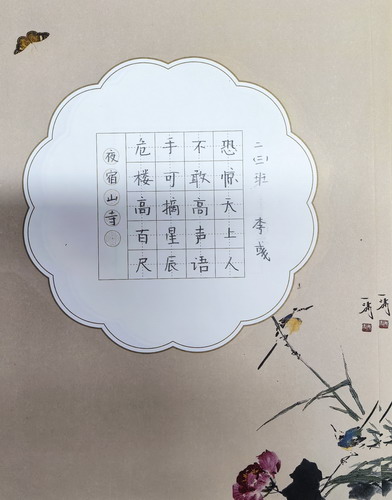 夜宿山寺
危楼高百尺
手可摘星辰
不敢高声语
恐惊天上人
二(三)班 李彧